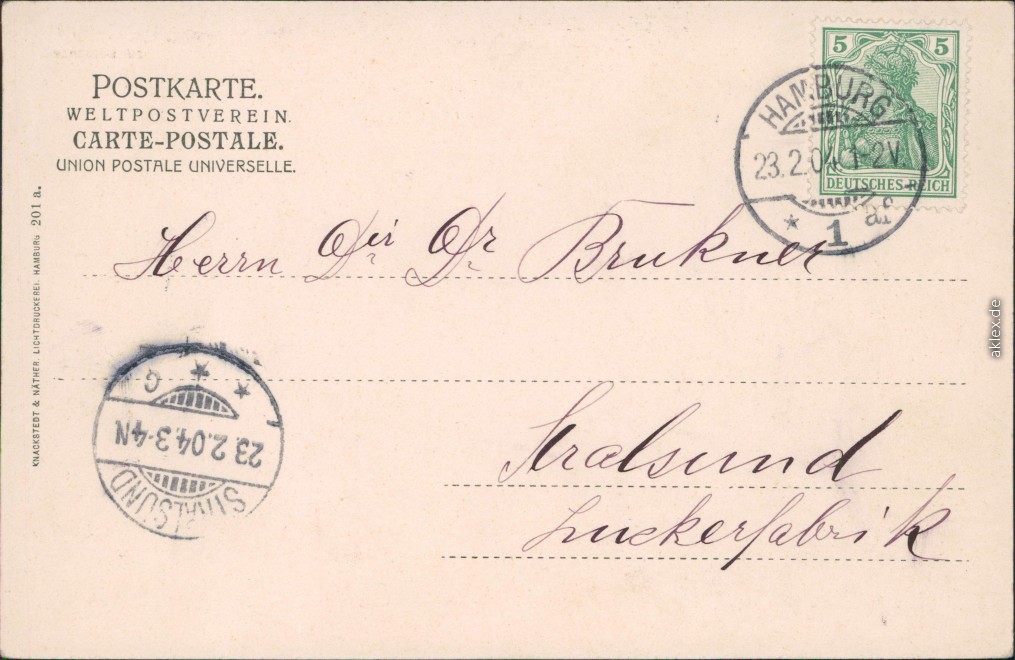 POSTKARTE.
WELTPOSTVEREIN.
CARTE-POSTALE.
UNION POSTALE UNIVERSELLE.
5 5
DEUTSCHES REICH
HAMBURG
23.2.04. 1-2V
* 1 af
Herrn Dir Dr Brukner
Stralsund
Zuckerfabrik
STRALSUND
23.2.04.3-4N
* * * C
KNACKSTEDT & NÄTHER, LICHTDRUCKEREI, HAMBURG 201a.
aklex.de